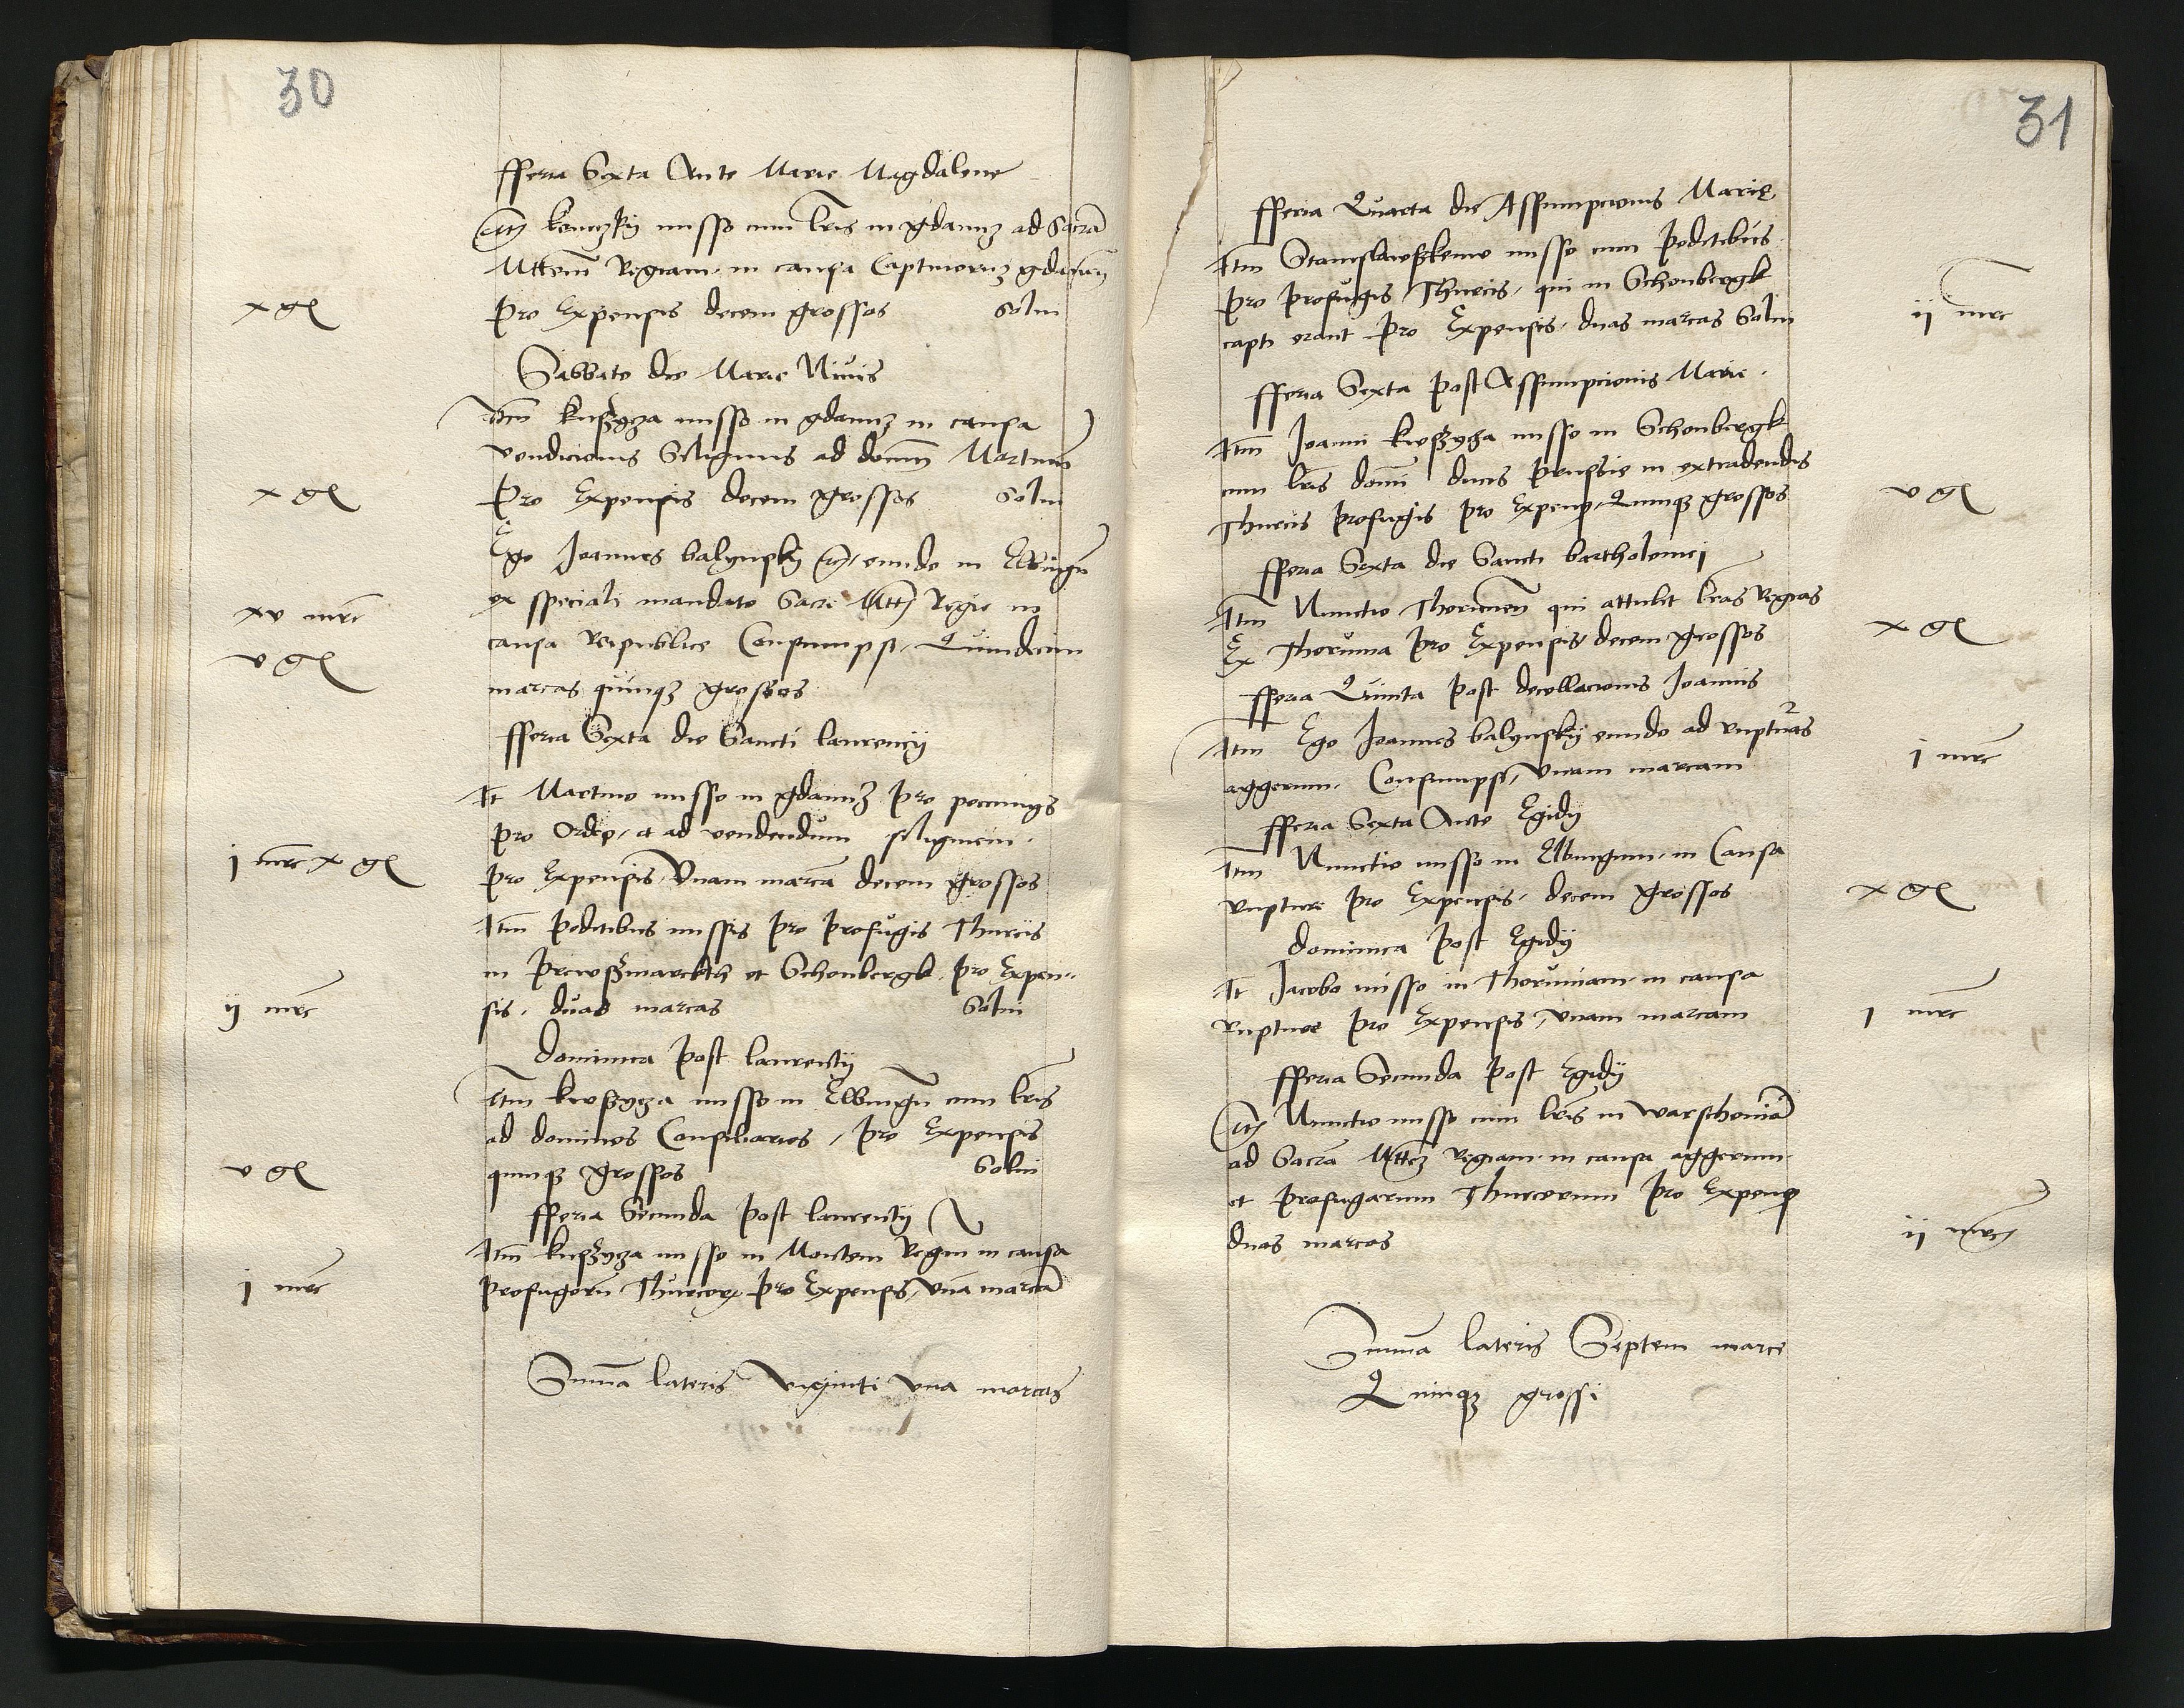 30
fferia Sexta Ante Marie Magdalene
Itm kenczky misso cum lris in gdanum ad Sacra
Mttem Regiam in causa Captivorum gdanum
x gl
pro Expensis decem grossos Solui
Sabbato die Marie Nivis
Itm knszycza misso in gdanum in causa
vendicionis Seliginis ad domum Martini
x gl
pro Expensis decem grossos Solui
Ego Joannes balynsky eundo in Elbingu
ex speciali mandato Sacre Mttis Regie in
xv mrc
causa Reipublice Consumpsi Quindecim
v gl
marcas quinqz grossos
fferia Sexta die Sancti laurencij
It Martino misso in gdanum pro pecuniis
pro ordeo et ad vendendum siliginem
j mrc x gl
pro Expensis Vnam marca decem grossos
Itm peditibus missis pro profugis Thurcis
in prewszmarckth et Schonbergk pro Expen
ij mrc
sis duas marcas Solui
Dominica post laurentij
Itm kroszycza misso in Elbingu cum lris
ad dominos Consiliarios pro Expensis
v gl
quinqz grossos Solui
fferia Secunda post laurentij
Itm knszycza misso in Montem Regiu in causa
j mrc
profugoru Thurcor pro Expensis vna marca
Summa lateris viginti vna marcas
31
fferia Quarta die Assumpcionis Marie
Itm Stanislawszkemo misso cum peditibus
pro profugis Thurcis qui in Schonbergk
capti erant pro Expensis duas marcas Solui
ij mrc
fferia Sexta post Assumpcionis Marie
Itm Joanni kroszycza misso in Schonbergk
cum lris domi ducis prussie in extradendis
Thurcis profugis pro Expens Quinqz grossos
v gl
fferia Sexta die Sancti bartholomei
Itm Nunctio Thorunen qui attulit lras Regias
Ex Thorunia pro Expensis decem grossos
x gl
fferia Quinta post decollacionis Joannis
Itm Ego Joannes balynsky eundo ad rupturas
aggerum Consumpsi vnam marcam
j mrc
fferia Sexta Ante Egidij
Itm Nunctio misso in Elbingum in Causa
rupture pro Expensis decem grossos
x gl
dominica post Egidij
It Jacobo misso in Thoruniam in causa
rupture pro Expensis vnam marcam
j mrc
fferia Secunda post Egidij
Itm Nunctio misso cum lris in warschouia
ad Sacra Mttem Regiam in causa aggerum
et profugarum Thurcorum pro Expens
duas marcas
ij mrc
Summa lateris Septem marce
Quinqz grossi